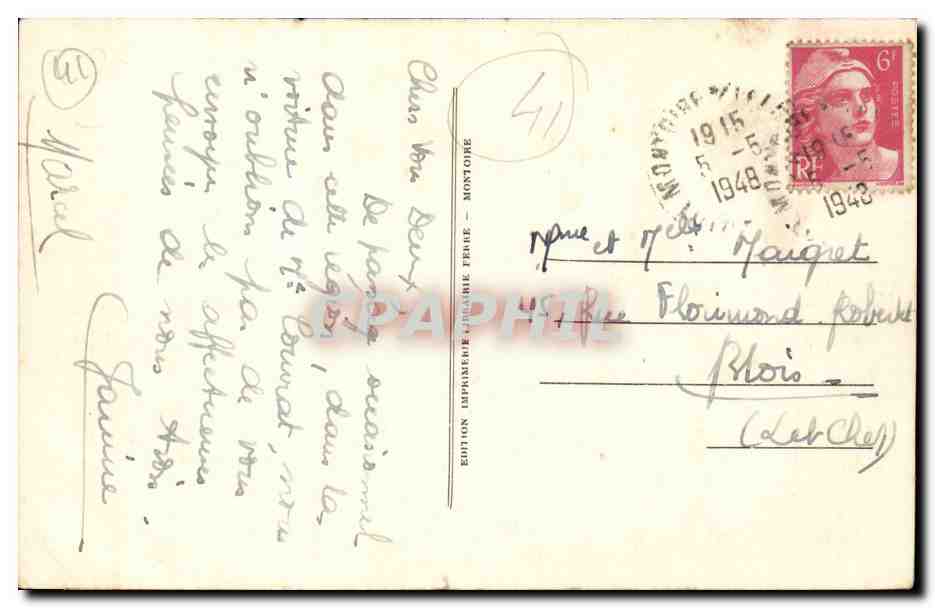 Chers vous Deux
De passage occasionnel
dans cette région, dans la
voiture de Mr Couvrat, nous
n'oublions pas de vous
envoyer les affectueuses
pensées de nous trois.
Janine
Marcel
41
EDITION IMPRIMERIE LIBRAIRIE FERRE – MONTOIRE
6F
POSTES
RF
MONTOIRE
1915
5 -5
1948
1915
5 -5
1948
Mme et Melle Maigret
15, Rue Florimond Robertet
Blois
(L et Cher)
CPAPHIL